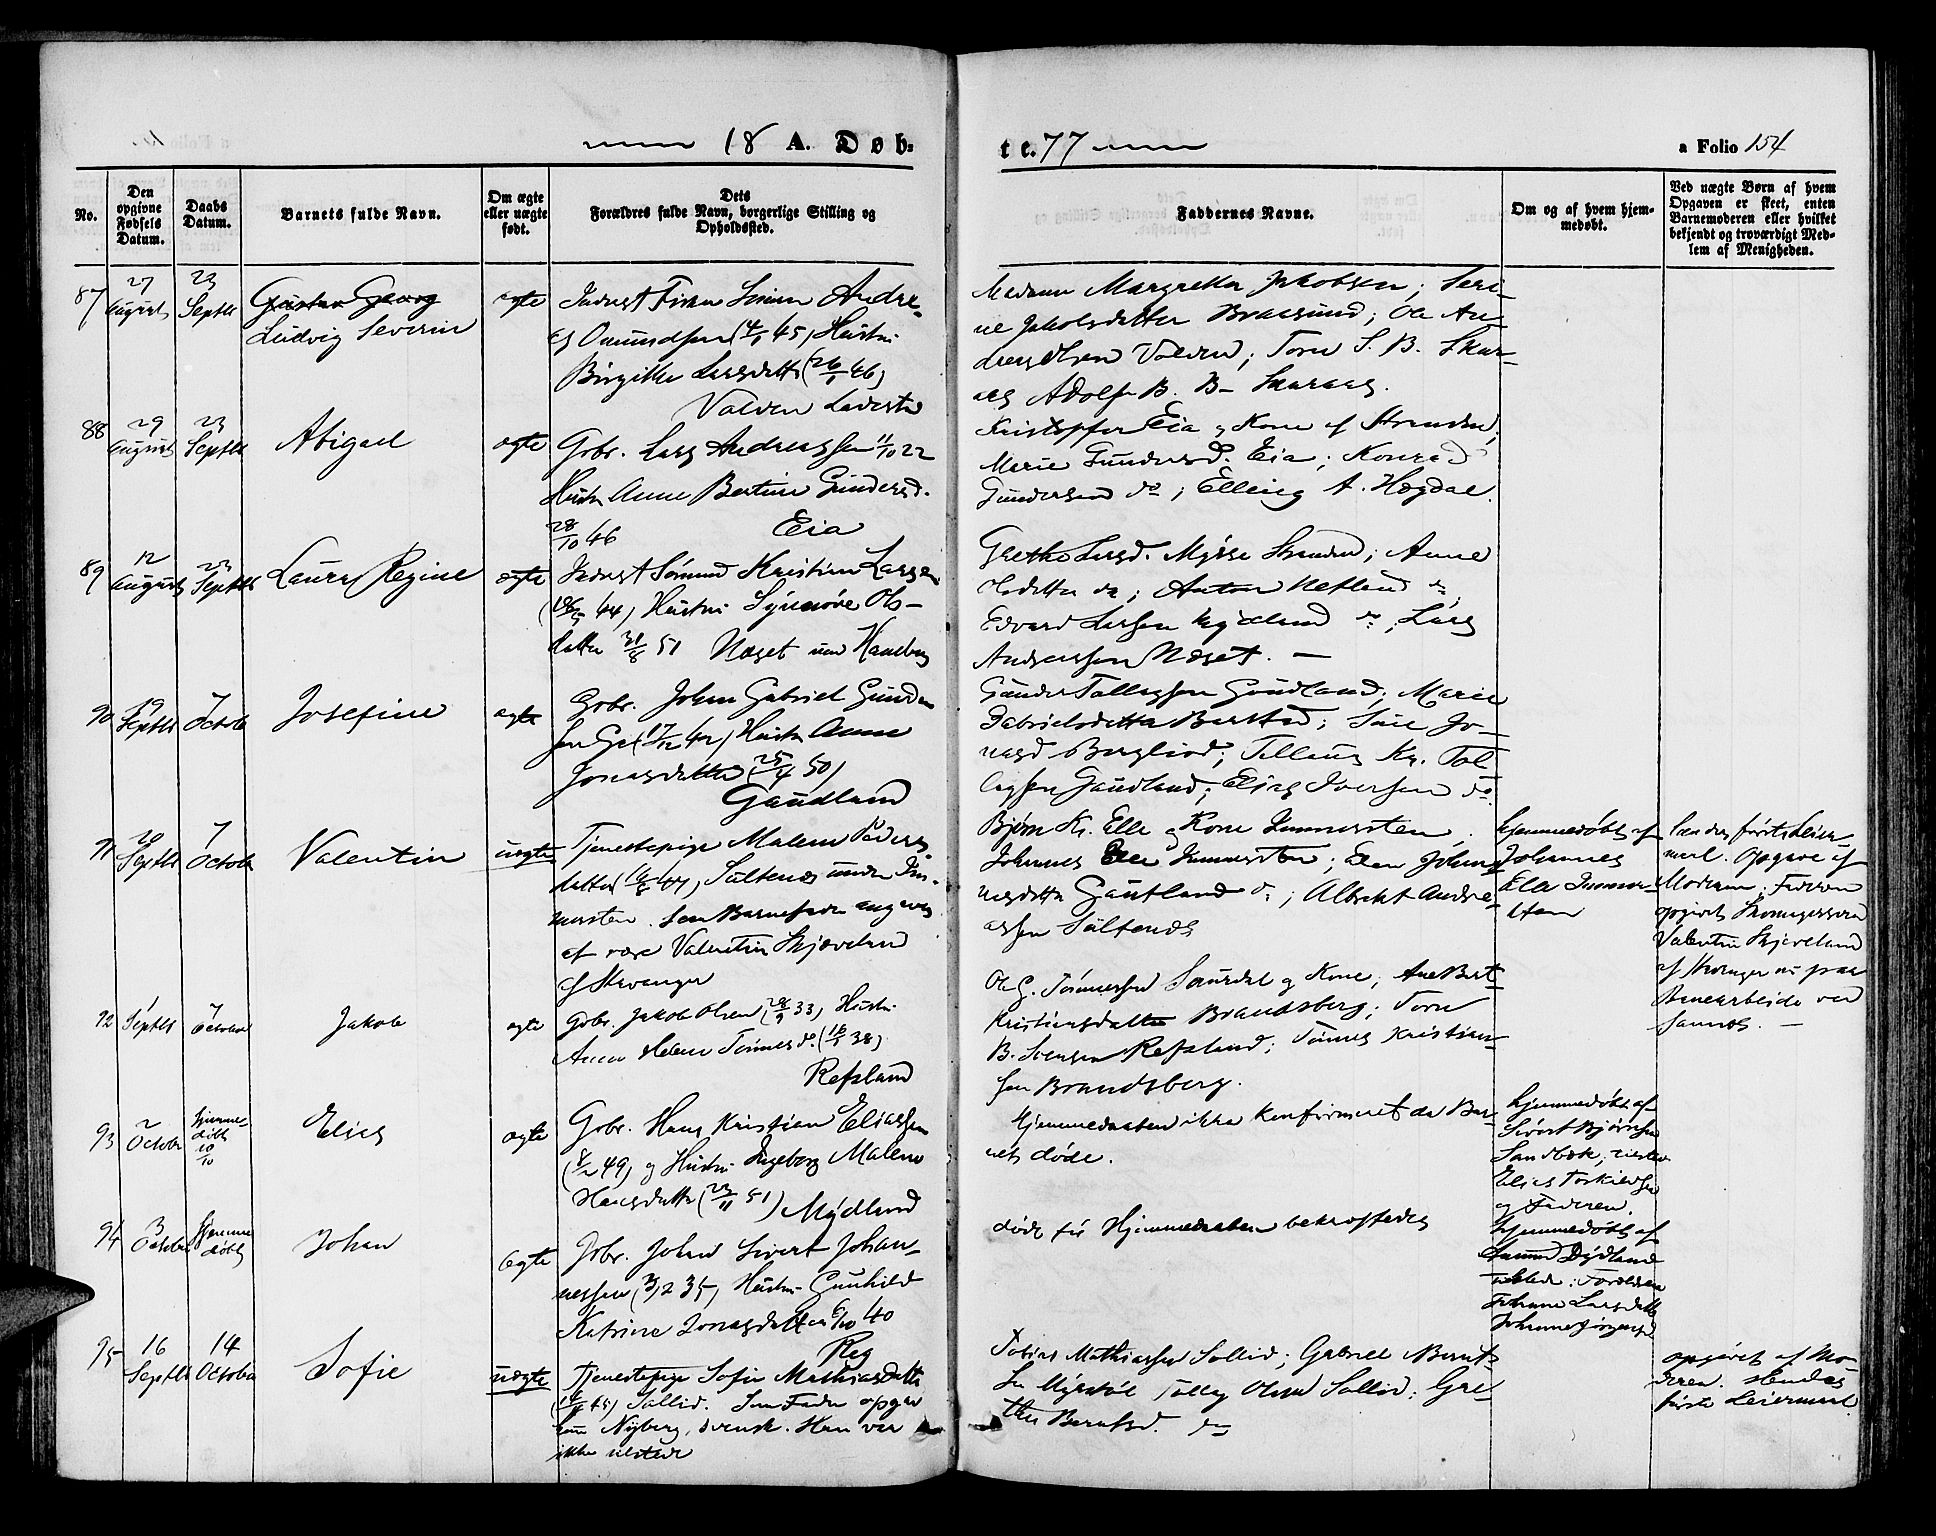 18 A. Døb=
te. 77
a Folio 154
No.
Den opgivne Fødsels Datum.
Daabs Datum.
Barnets fulde Navn.
Om ægte eller uægte født.
Dets Forældres fulde Navn, borgerlige Stilling og Opholdssted.
Faddernes Navne.
Om og af hvem hjemmedøbt.
Ved uægte Børn af hvem Opgaven er skeet, enten Barnemoderen eller hvilket bekjendt og troværdigt Medlem af Menigheden.
87
27 August
23 Septbr
Gustav Georg
Ludvig Severin
ægte
Andre-
as Omundsen (4/1 45) Hustru
Birgitte Larsdatter (26/1 46)
Valden
Madame Margretha Jakobsen; Seri-
ne Jakobsdatter Braasund; Ole An-
dreas Olsen Valden; Tore S. B. Skar-
aas Adolf B. B-
88
29 August
23 Septbr
Abigael
ægte
Gbr. Lars Andreassen 11/10 22
Hustr Anne Bertine Gundersd.
28/10 46 Eia
Kristoffer Eia og Kone af Stranden;
Marie Gundersd. Eia; Konrad
Gundersen do; Elling A. Hægdal.
89
12 August
23 Septbr
Laura Regine
ægte
Kristian Larsen
44) Hustru Synnøve Ols-
datter 31/8 51 Næset
Grethe Larsd. Mysse Stranden; Anne
Olsdatter do; Anton Netland do;
Edvard Larsen do; Lars
Andreassen Næset. —
90
19 Septbr
7 Octob
Josefine
ægte
Gbr. Johan Gabriel Gunder
sen (17/12 42) Hustr Anne
Jonasdatter (25/4 50)
Gaudland
Gunder Tollagsen Gaudland; Marie
Gabrielsdatter Berstad; Sine Jo-
nasd Bergliod; Tillaug Kr. Tol
lagsen Gaudland; Elias Iversen do.
91
20 Septbr
7 Octob
Valentin
uægte
Tjenestepige Malene Peders-
datter Sultenes under Im-
mersten. Som Barnefader angives
at være Valentin Skjæveland
af Stavanger
Bjørn Kr. Elle og Kone Immersten.
Johannes Elle Immersten; Ellen Johan-
nesdatter Gautland do; Albrekt Andre-
assen Sultenes
hjemmedøbt af
Johannes
Elle Immer-
sten
hendes første Leier-
maal. Opgave af
Moderen; Faderen
opgivet
Valentin Skjæveland
af Stavanger
Banearbeide ved
92
1 Septbr
7 Octob
Jakob
ægte
Gbr. Jakob Olsen (28/9 33), Hustru
Anna Helene Tønnesd. (16/5 38)
Refsland
Ole G. Tønnessen Saurdal og Kone; Ane Bert
Kristiansdatter Brandsberg; Tore
B. Svensen Refsland; Tønnes Kristian-
sen Brandsberg.
93
2 Octob
hjemme-
døbt
10/10
Elias
ægte
Gbr. Hans Kristian Eliassen
(8/2 49) og Hustru Ingeborg Malene
Hansdatter (23/11 51) Mydland
Hjemmedaaben ikke konfirmeret da Bar-
net døde.
hjemmedøbt af
Sivert Bjørnsen
Sandbæk,
Elias Torkildsen
og Faderen.
94
3 Octob
hjemme
døbt
Johan
ægte
Gbr. Johan Sivert Johan-
nessen (3/2 35), Hustru Gunhild
Katrine Jonasdatter 6/10 40
Reg
døde før Hjemmedaaben bekræftedes
hjemmedøbt af
Dydland
Johanne Larsdatter
95
16 Septbr
14 Octobr
Sofie
uægte
Tjenestepige Sofie Mathiasdatter
45) Sollid. Som Fader opgav
hun Nyberg, svensk. Han var
ikke tilstede
Tobias Mathiassen Sollid; Gabriel Bernt-
sen Myrstøl Tolleg Olsen Sollid; Gre-
the Berntsd. do
opgivet af Mo-
deren. Hendes
første Leiermaal